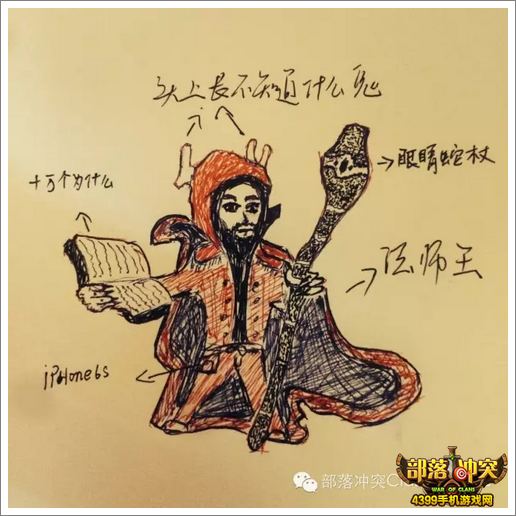 头上长不知道什么鬼
十万个为什么
眼睛蛇杖
法师王
iPHone6s
部落冲突Cl
部落冲突
WAR OF CLANS
4399手机游戏网